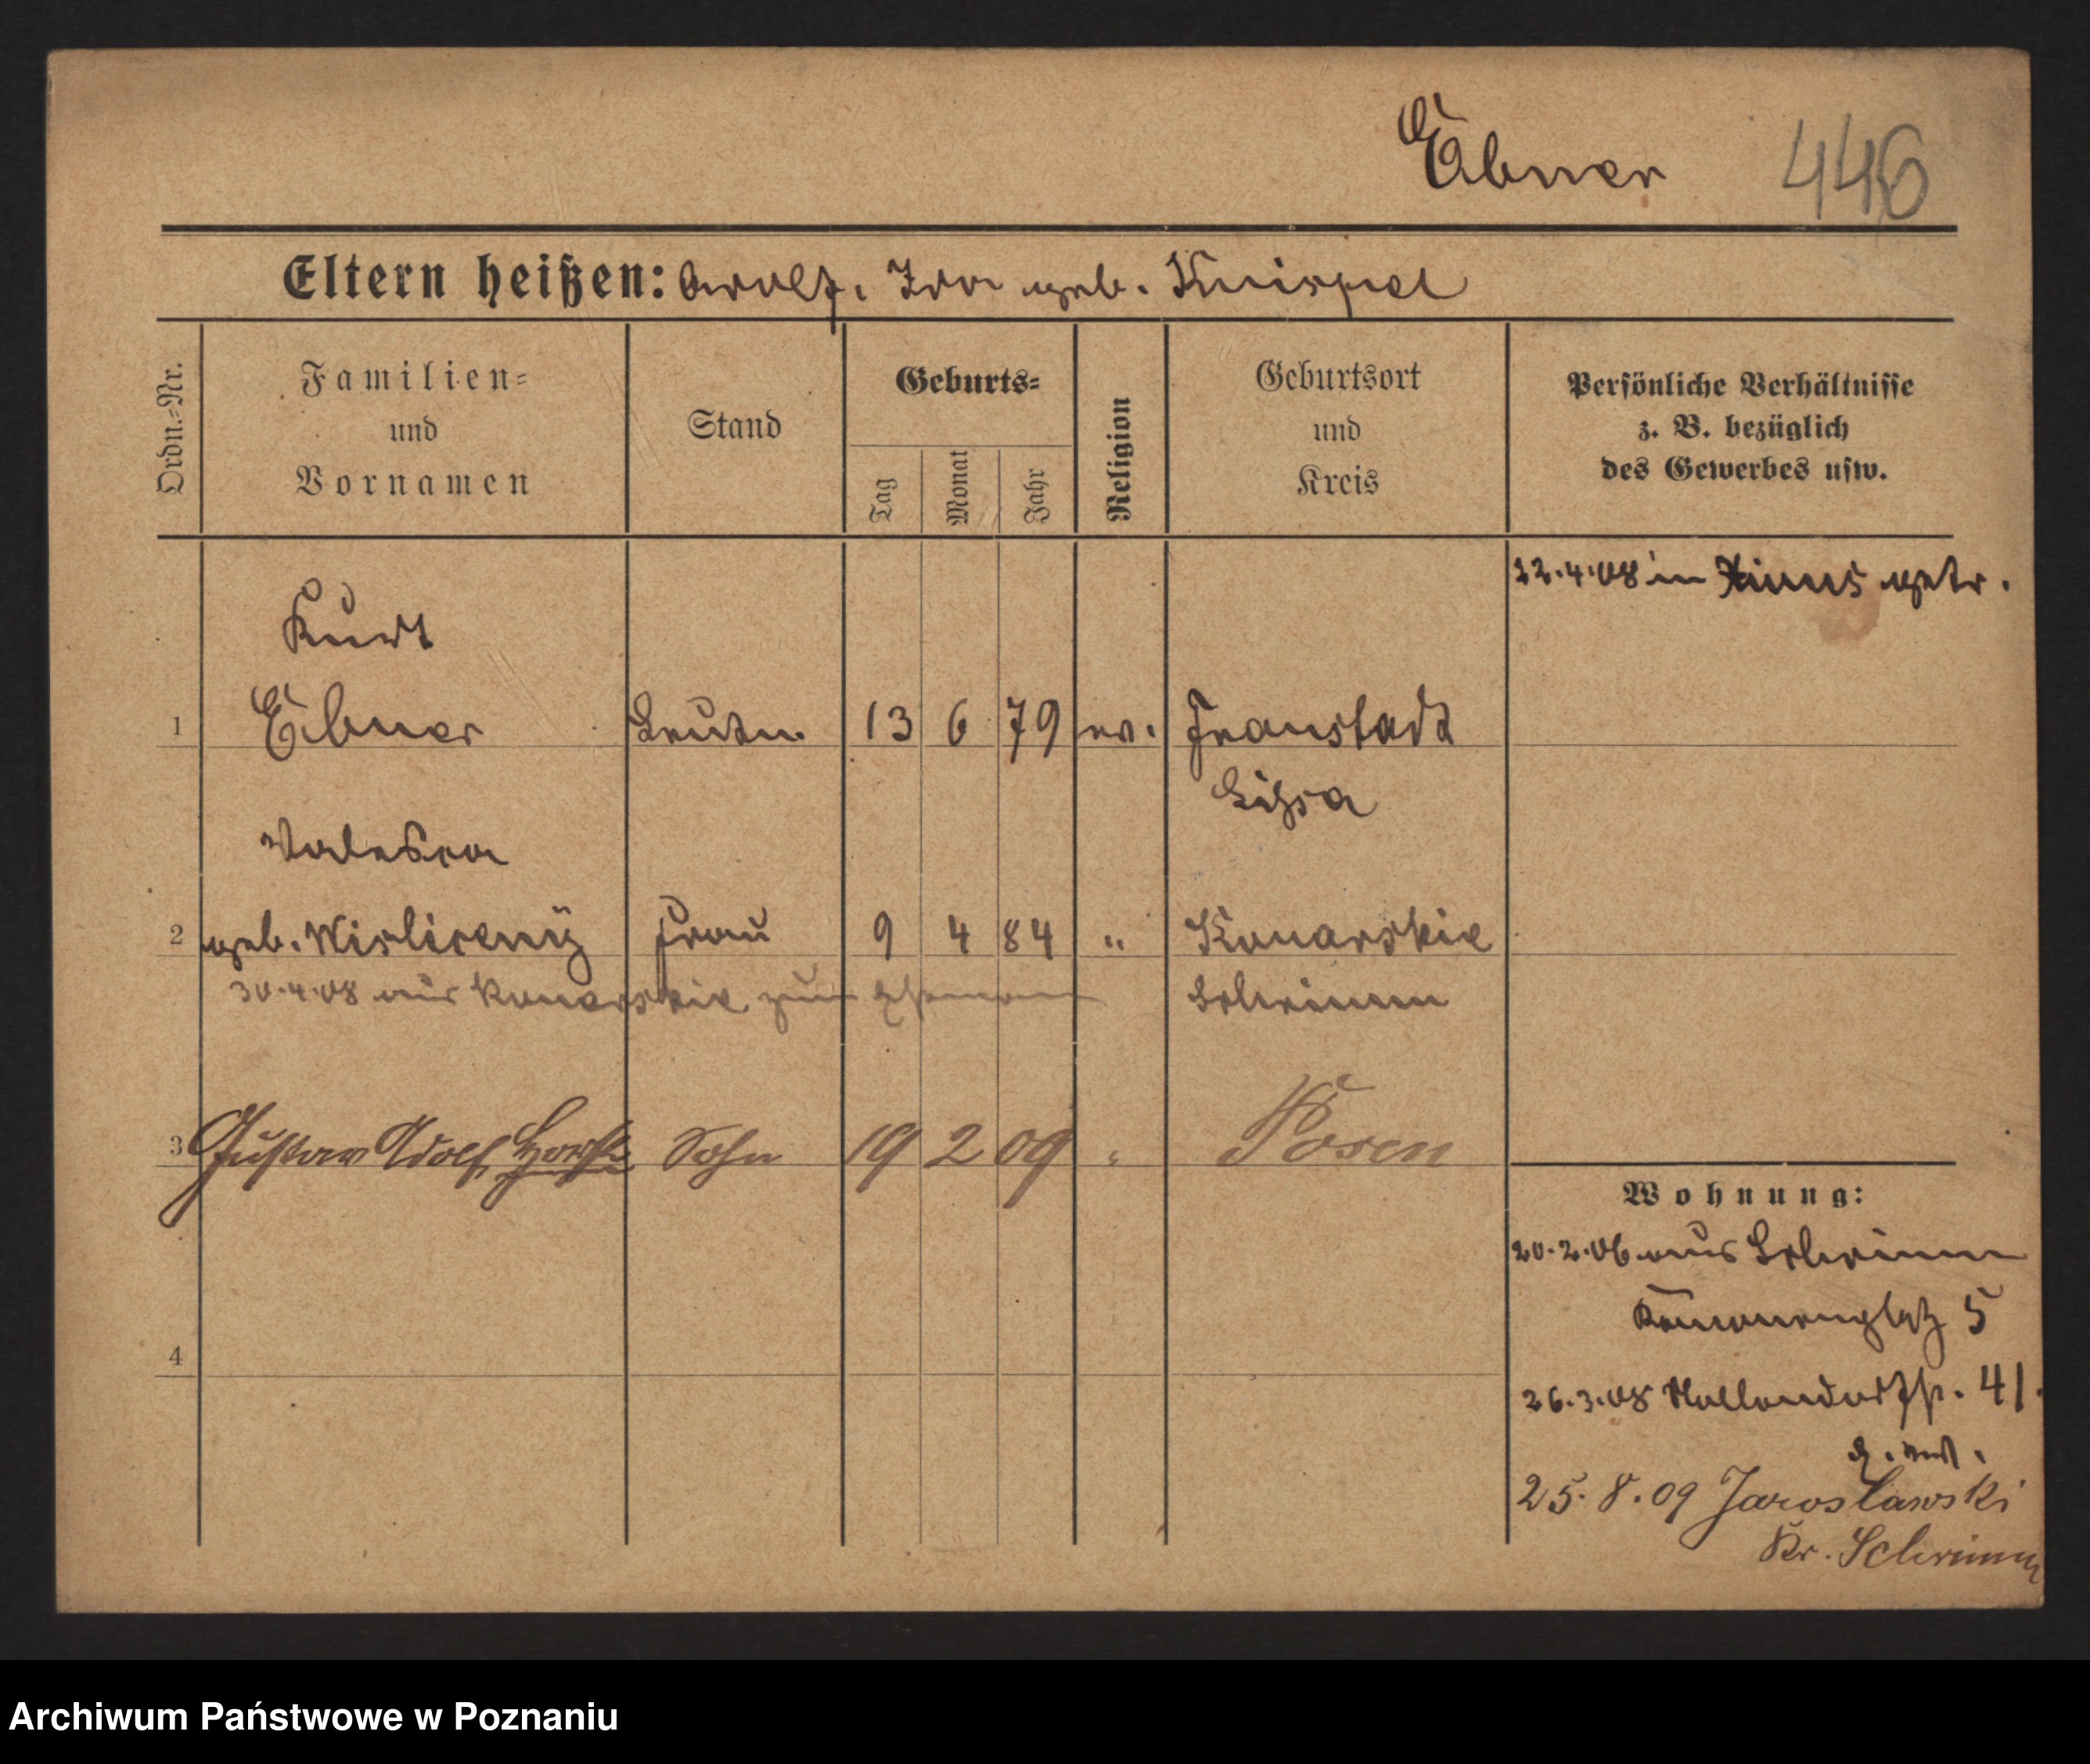 Ebner 446
Eltern heißen: Adolf, Ida geb. Knispel
Ordn.-Nr.
Familien-
und
Vornamen
Stand
Geburts-
Tag
Monat
Jahr
Religion
Geburtsort
und
Kreis
Persönliche Verhältnisse
z. B. bezüglich
des Gewerbes usw.
22.4.08 in Xions getr.
Kurt
1 Ebner Leutn. 13 6 79 ev. Fraustadt
Lissa
Valeska
2 geb. Wislicenÿ Frau 9 4 84 " Konarskie
30.4.08 aus Konarskie zum Ehemann Schrimm
3 Gustav Adolf Horst Sohn 19 2 09 " Posen
Wohnung:
20.2.06 aus Schrimm
Kanonenplatz 5
26.3.08 Hollendorfstr. 41.
25.8.09 Jaroslawski
Kr. Schrimm
4
Archiwum Państwowe w Poznaniu